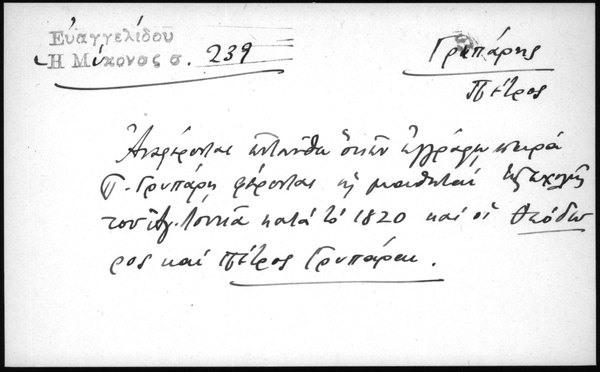 Εὐαγγελίδου
Ἡ Μύκονος σ. 239
Γρυπάρης
Πέτρος
Ἀναφέρονται ἐνταῦθα ὅτι ἐν ἐγγράφῳ παρὰ
Π. Γρυπάρη φέρονται ὡς μαθηταί τῆς σχολῆς
τοῦ Ἁγ. κατὰ τὸ 1820 καὶ οἱ Θεόδω
ρος καὶ Πέτρος Γρυπάραι.